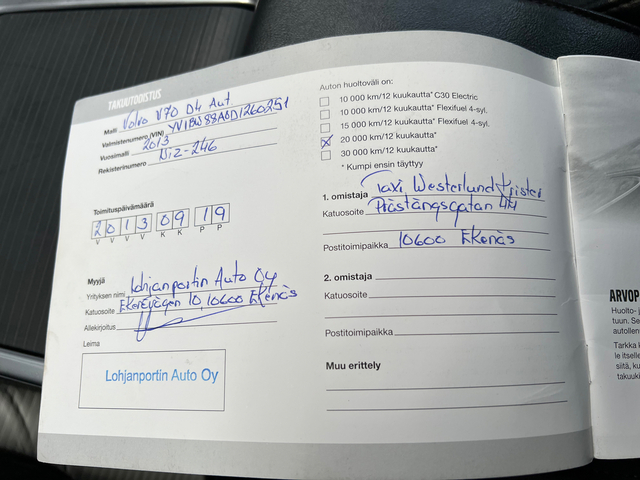 TAKUUTODISTUS
Malli Volvo V70 D4 Aut
Valmistenumero (VIN) YV1BW88A6D1260251
Vuosimalli 2013
Rekisterinumero NIZ-246
Toimituspäivämäärä
2013 09 19
V V V V K K P P
Myyjä
Yrityksen nimi Lohjanportin Auto Oy
Katuosoite Ekenäsvägen 10, 10600 Ekenäs
Allekirjoitus
Leima
Lohjanportin Auto Oy
Auton huoltoväli on:
10 000 km/12 kuukautta* C30 Electric
10 000 km/12 kuukautta* Flexifuel 4-syl.
15 000 km/12 kuukautta* Flexifuel 4-syl.
20 000 km/12 kuukautta*
30 000 km/12 kuukautta*
* Kumpi ensin täyttyy
1. omistaja Taxi Westerlund Krister
Katuosoite Prästängsgatan
Postitoimipaikka 10600 Ekenäs
2. omistaja
Katuosoite
Postitoimipaikka
Muu erittely
ARVOP
Huoito- j
tuun. Se
autollen
Tarkka k
le itselle
siitä, ku
takuuki